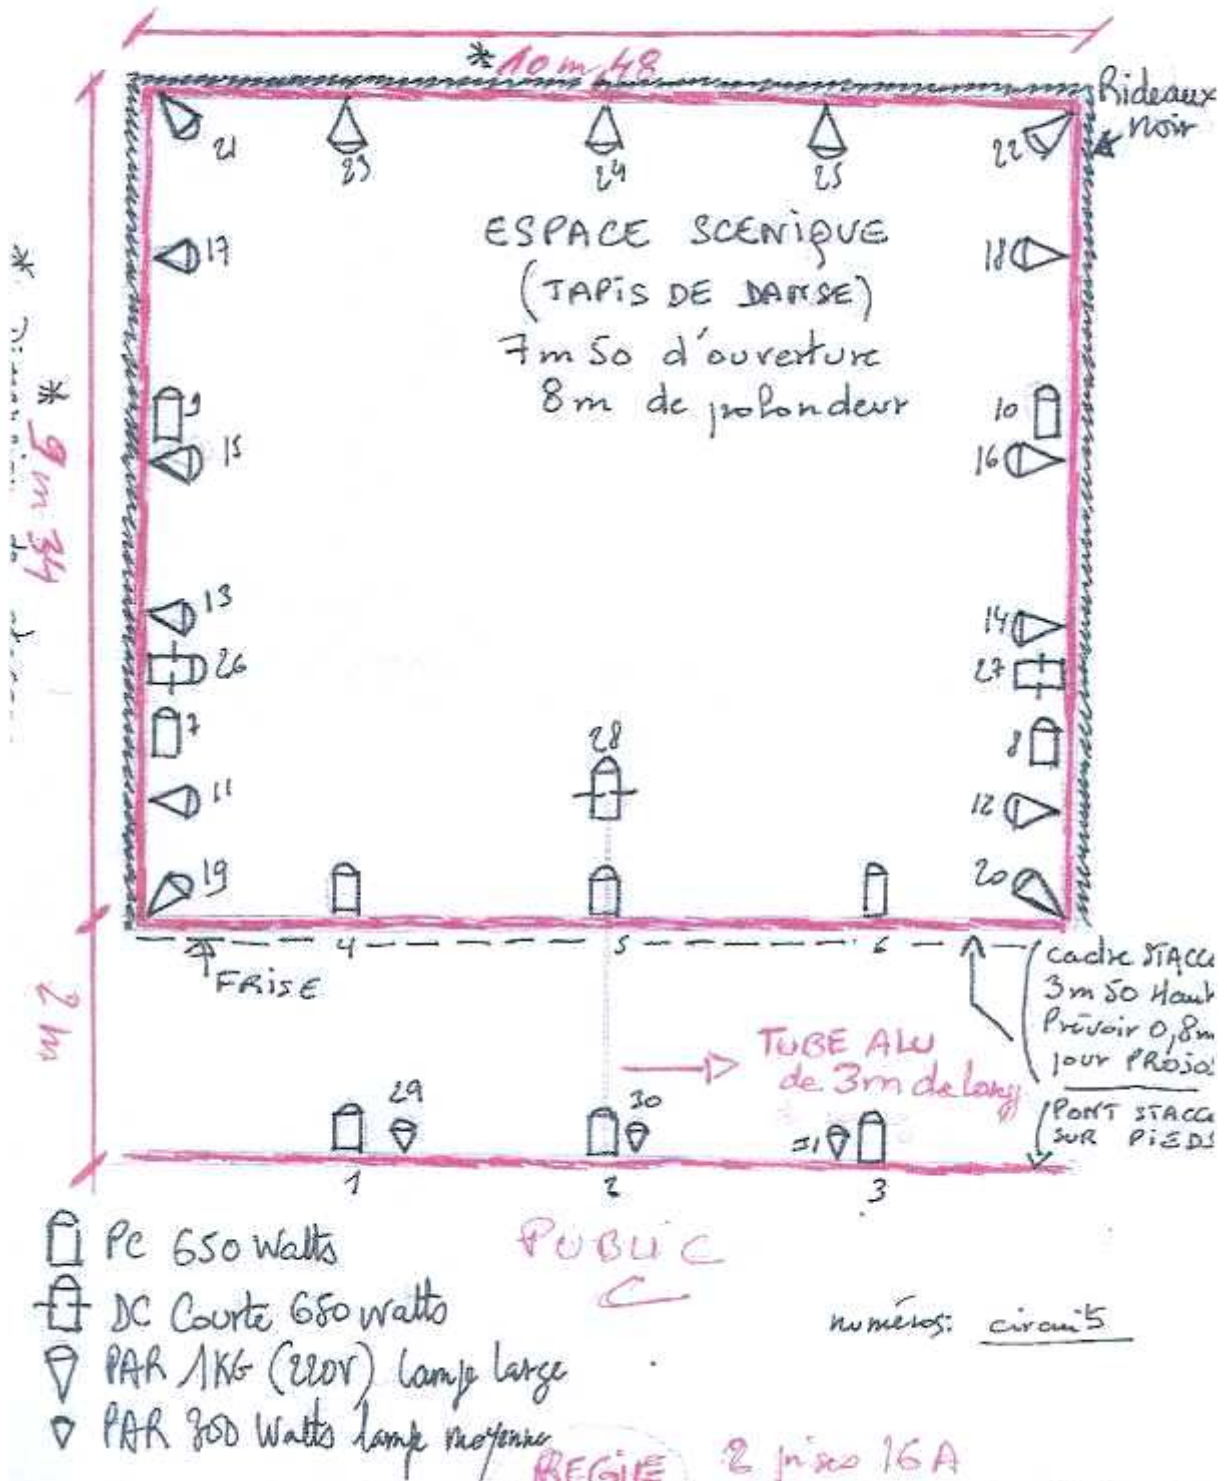 *10m,48
Rideaux
noir
21
23
24
25
22
17
18
ESPACE SCENIQUE
(TAPIS DE DANSE)
7m50 d'ouverture
8m de profondeur
* 9m34
9
10
15
16
13
14
26
27
7
8
28
11
12
19
20
4
5
6
FRISE
cadre STACCO
3m50 Haut
Prévoir 0,8m
pour PROJOS
2m
TUBE ALU
de 3m de long
PONT STACCO
SUR PIEDS
29
30
31
1
2
3
PC 650 Watts
PUBLIC
DC Courte 650 watts
numéros: circuits
PAR 1KG (220V) lampe large
PAR 300 Watts lampe moyenne
REGIE
2 prises 16A